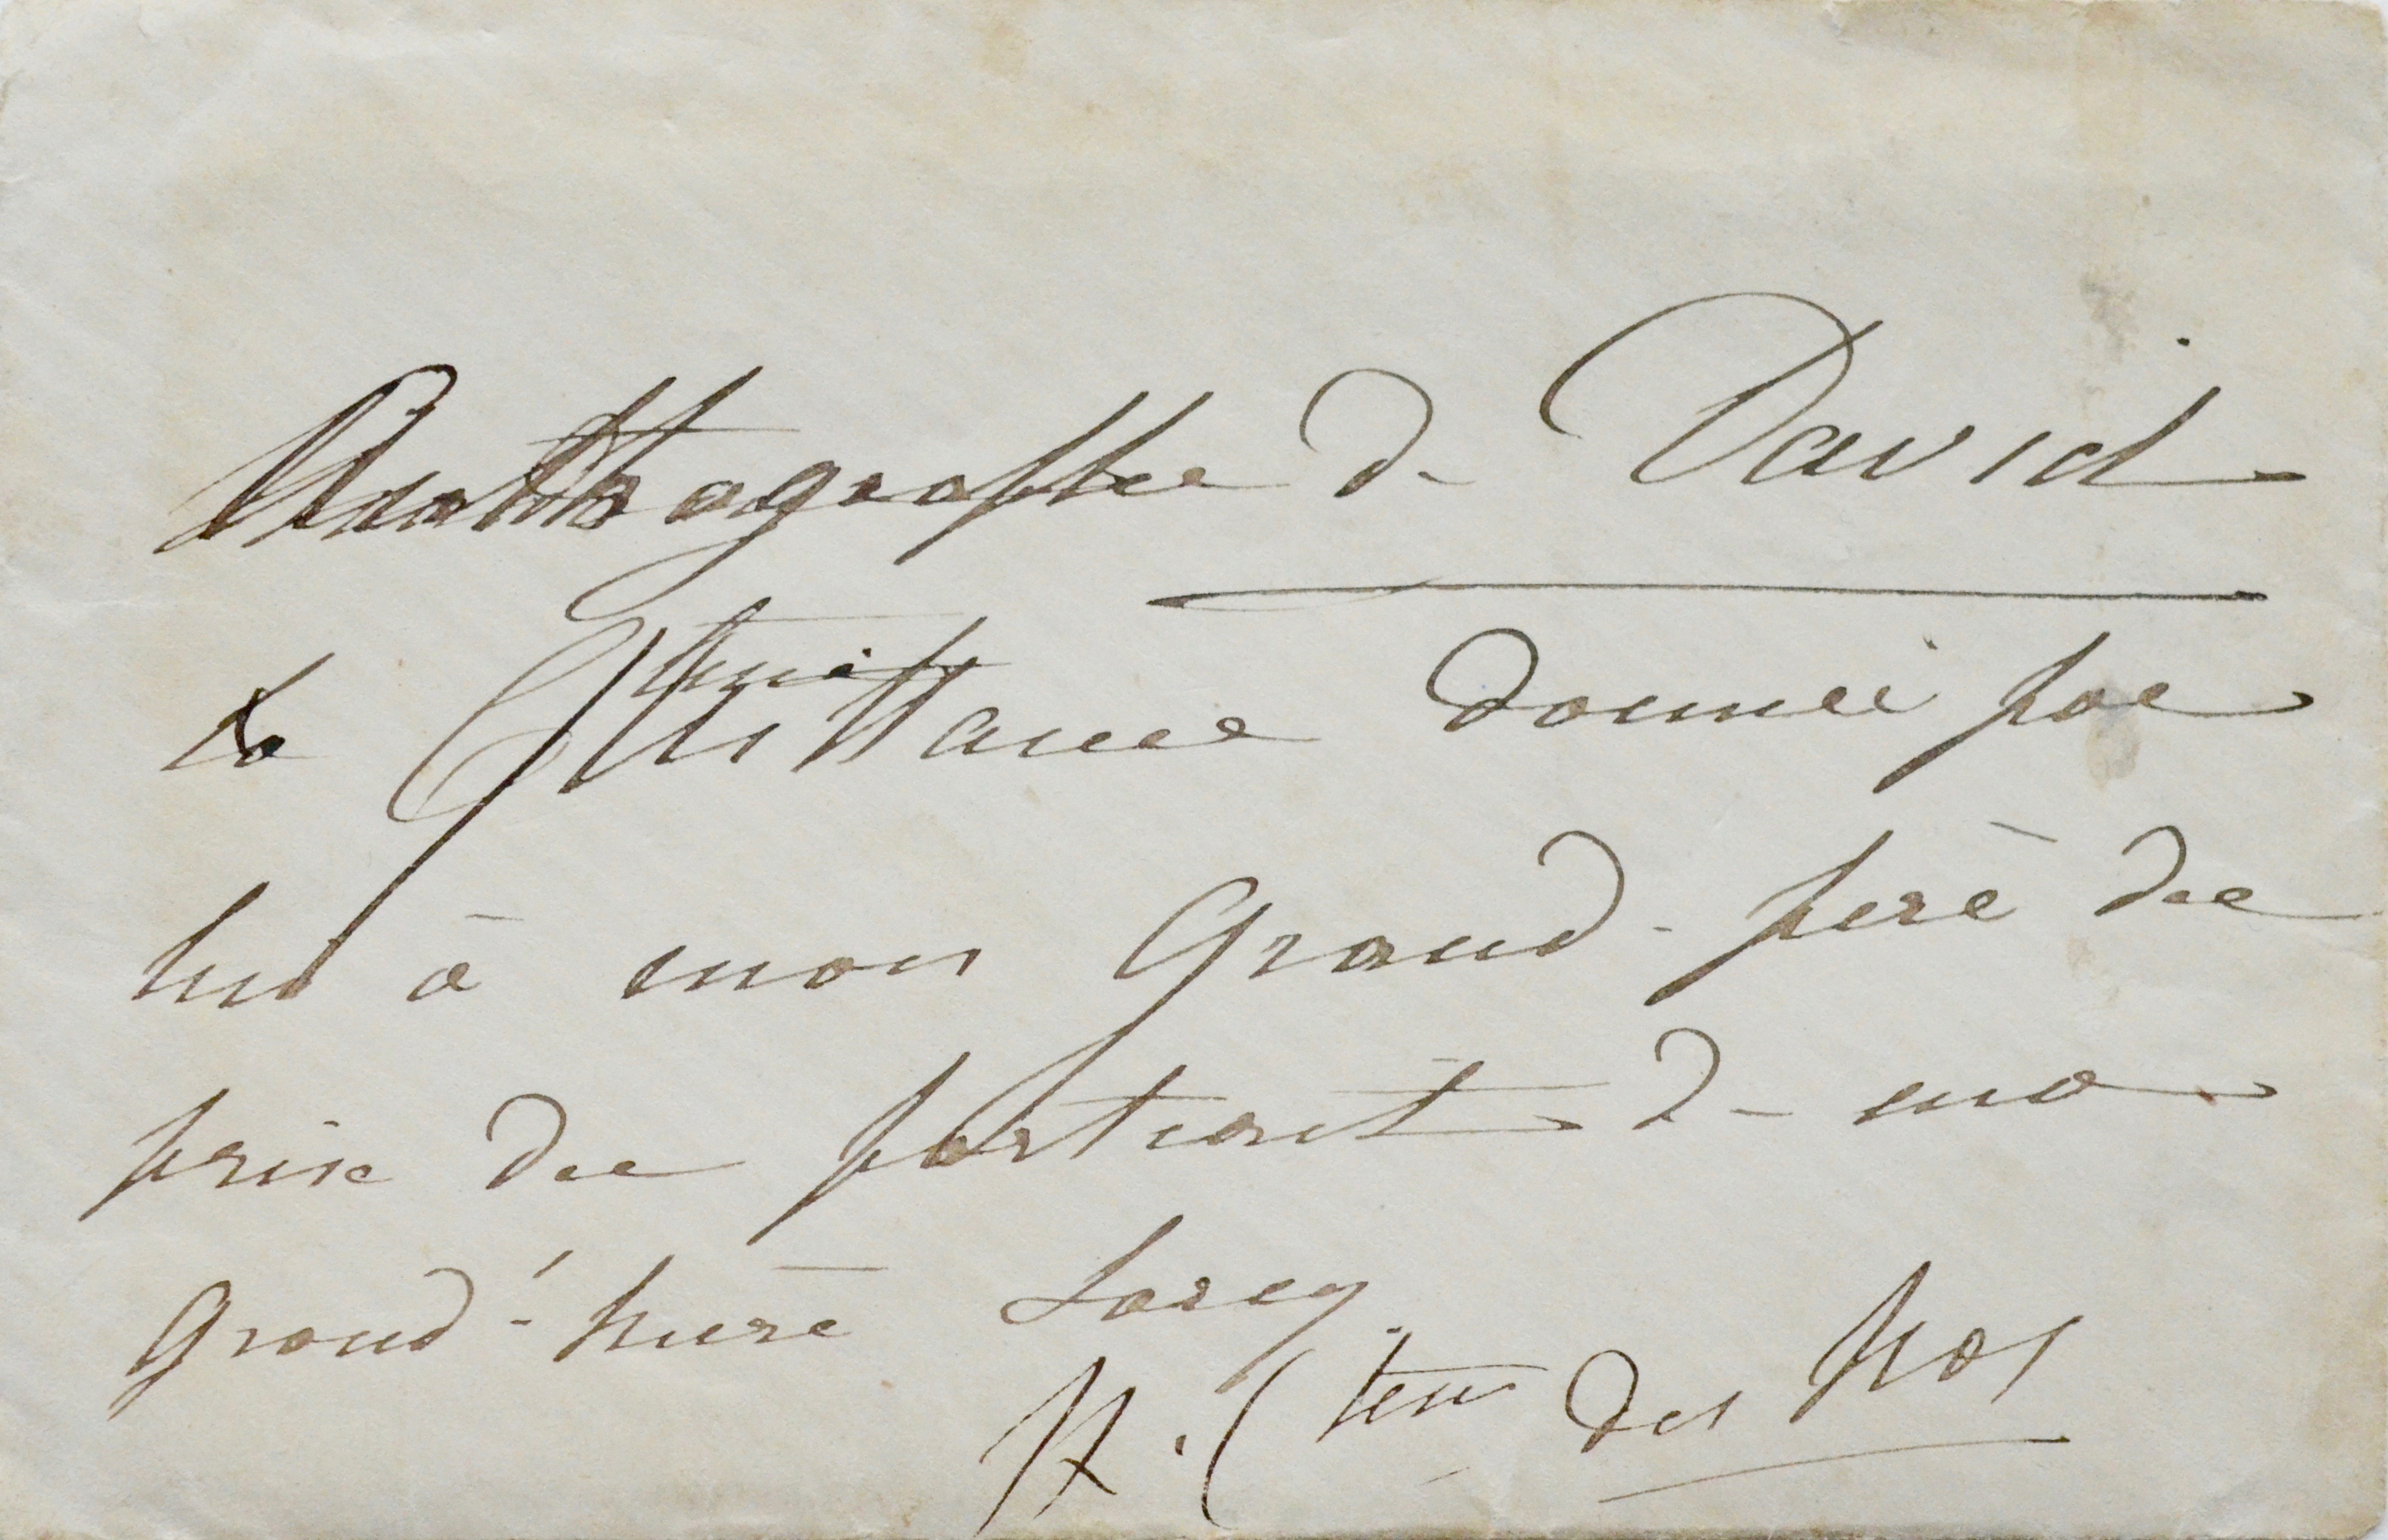 Authographe de David
la Quittance donnée par
lui à mon Grand-père du
prix du portrait de ma
Grand'-mère Sorcy
Ctesse des Nos